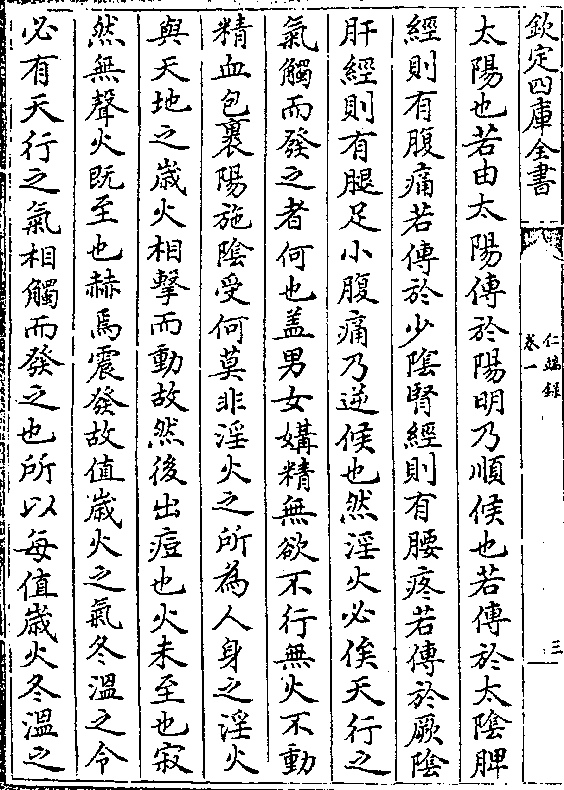 欽定四庫全書
仁端錄
卷一
三
太陽也若由太陽傳於陽明乃順候也若傳於太陰脾
經則有腹痛若傳於少陰腎經則有腰疼若傳於厥陰
肝經則有腿足小腹痛乃逆候也然淫火必俟天行之
氣觸而發之者何也盖男女媾精無欲不行無火不動
精血包裹陽施陰受何莫非淫火之所為人身之淫火
與天地之歳火相擊而動故然後出痘也火未至也寂
然無聲火既至也赫焉震發故值歳火之氣冬溫之令
必有天行之氣相觸而發之也所以每值歳火冬溫之